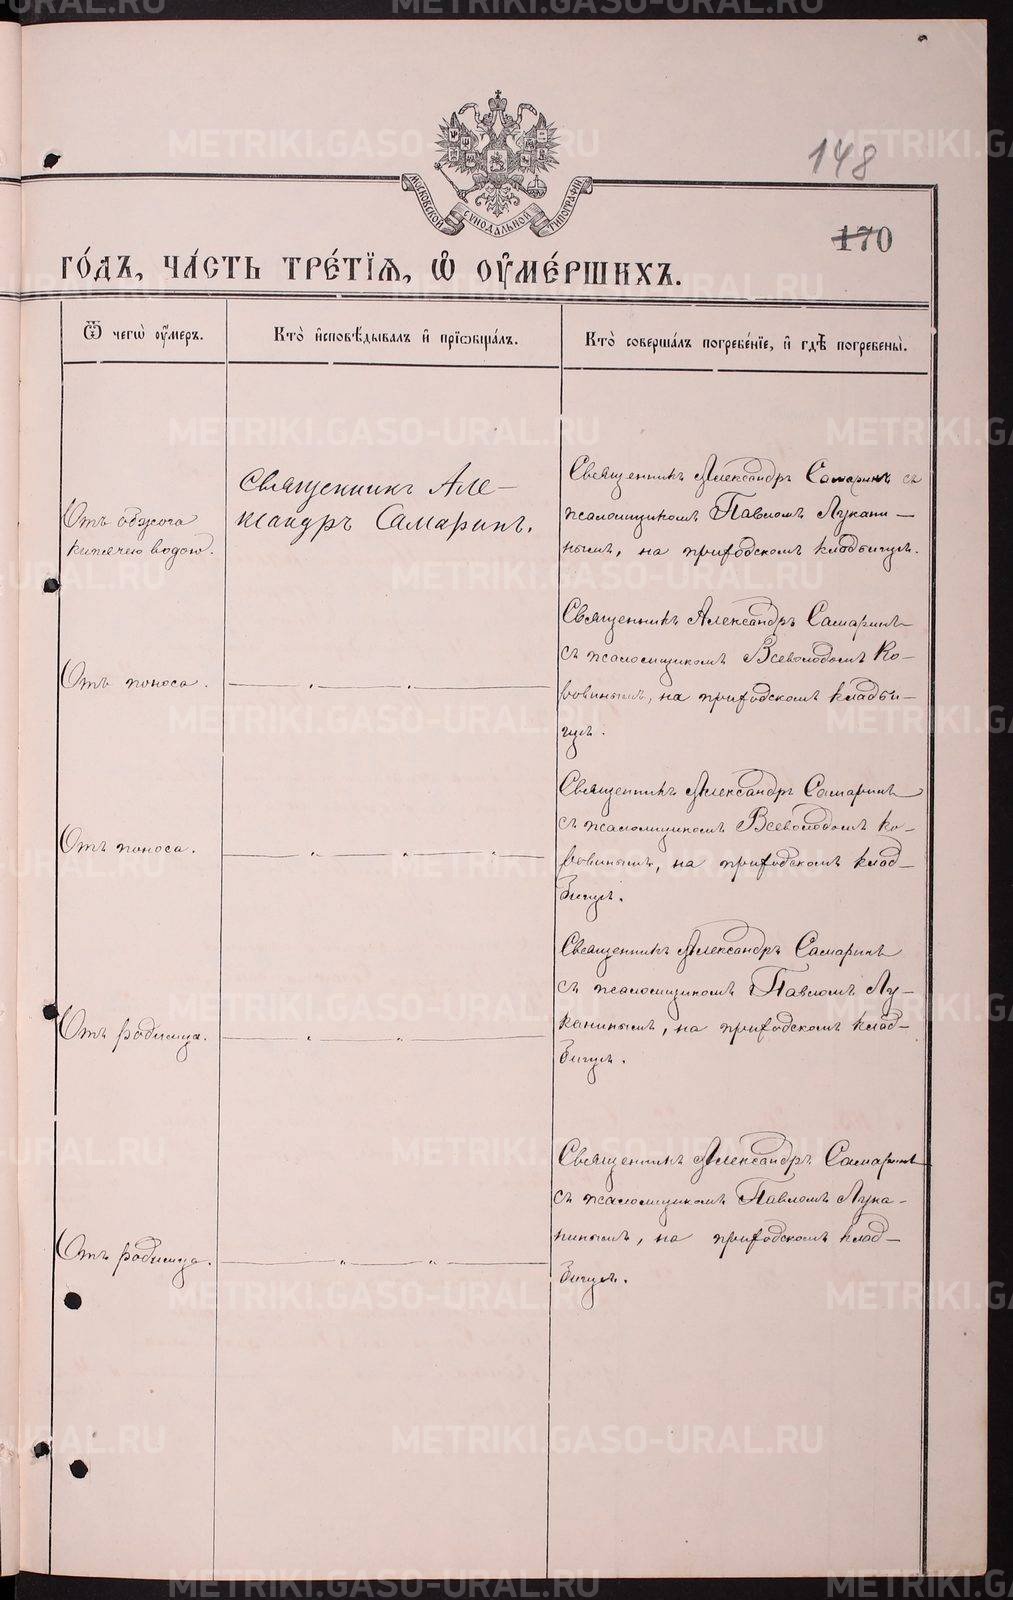 148
170
МОСКОВСКОЙ СѴНОДАЛЬНОЙ ТИПОГРАФІИ.
ГО́ДЪ, ЧА́СТЬ ТРЕ́ТІѦ, Ѡ҆ ОУ҆МЕ́РШИХЪ.
Ѿ чегѡ̀ ᲂу҆́меръ.
Кто̀ и҆сповѣ́дывалъ и҆ прїѡбща́лъ.
Кто̀ соверша́лъ погребе́нїе, и҆ гдѣ̀ погребены̀.
Отъ обжога
кипячею водою.
Священникъ Але-
ксандръ Самаринъ.
Священникъ Александръ Самаринъ съ
псаломщикомъ Павломъ Лукани-
нымъ, на приходскомъ кладбищѣ.
Отъ поноса.
Священникъ Александръ Самаринъ
съ псаломщикомъ Всеволодомъ Ко-
ровинымъ, на приходскомъ кладби-
щѣ.
Отъ поноса.
Священникъ Александръ Самаринъ
съ псаломщикомъ Всеволодомъ Ко-
ровинымъ, на приходскомъ клад-
бищѣ.
Отъ родимца.
Священникъ Александръ Самаринъ
съ псаломщикомъ Павломъ Лу-
канинымъ, на приходскомъ клад-
бищѣ.
Отъ родимца.
Священникъ Александръ Самаринъ
съ псаломщикомъ Павломъ Лука-
нинымъ, на приходскомъ клад-
бищѣ.
METRIKI.GASO-URAL.RU